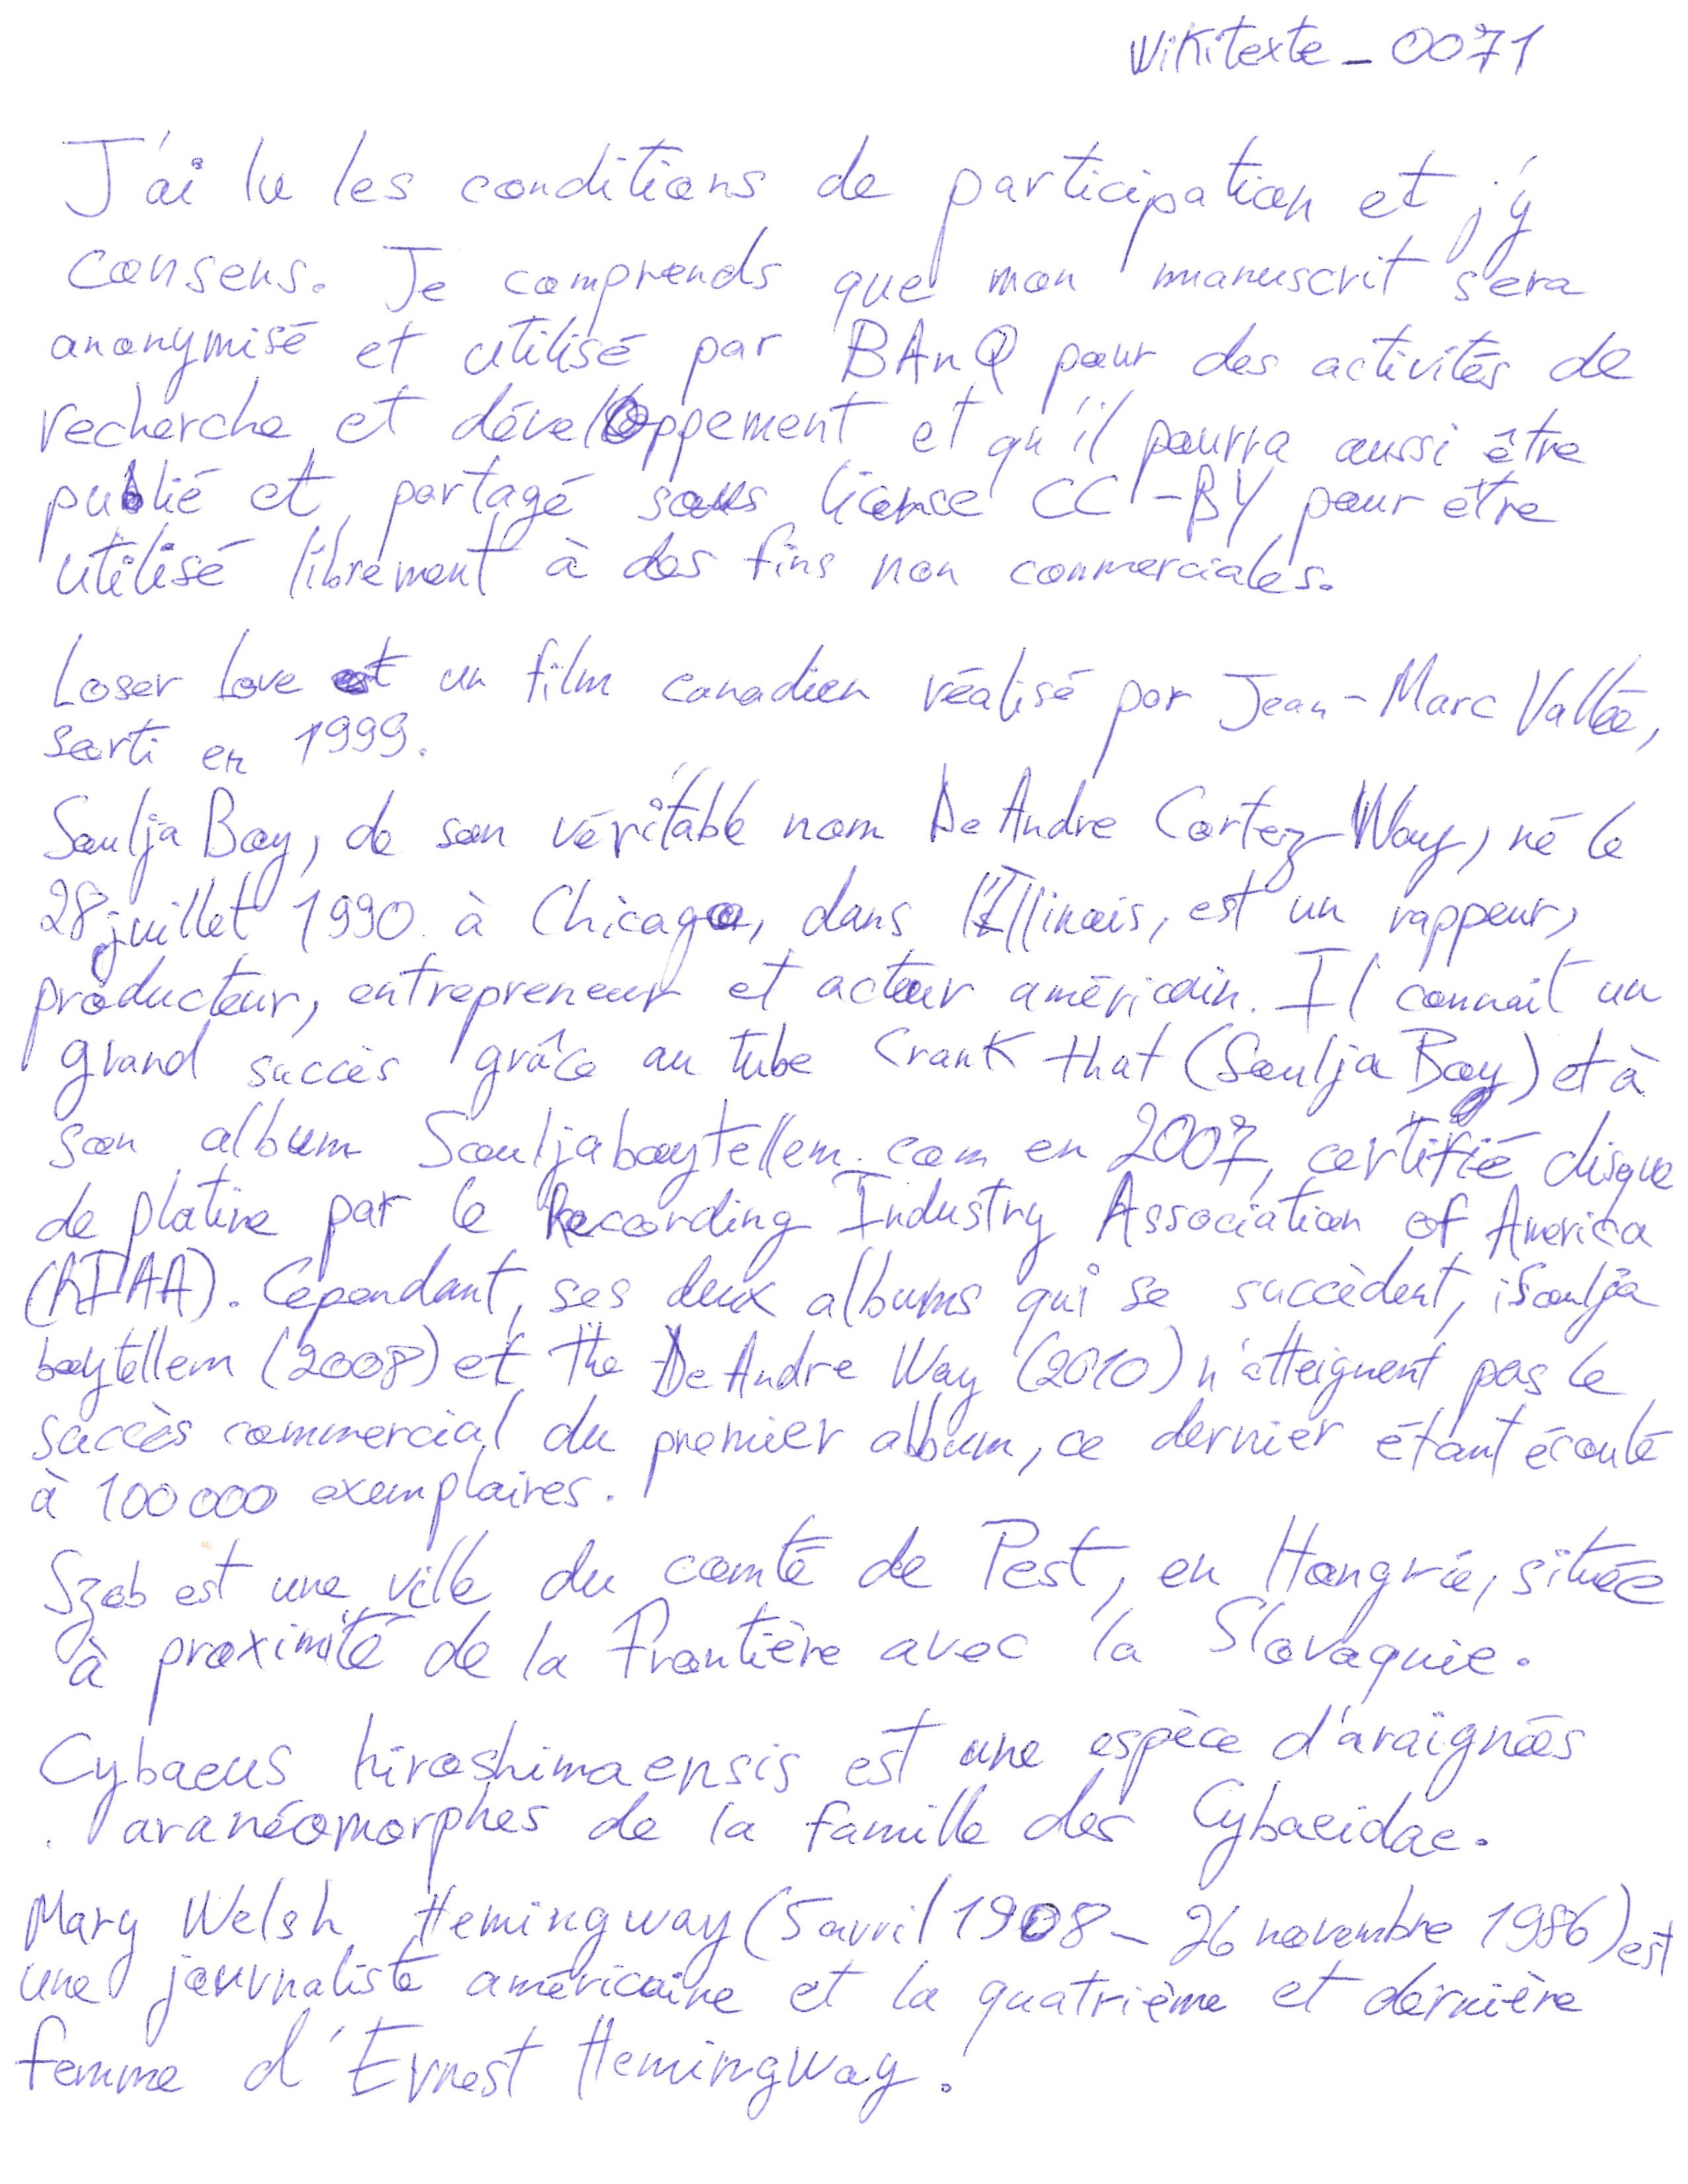 Wikitexte_0071
J'ai lu les conditions de participation et j'y
consens. Je comprends que mon manuscrit sera
anonymisé et utilisé par BAnQ pour des activités de
recherche et développement et qu'il pourra aussi être
publié et partagé sous licence CC-BY pour être
utilisé librement à des fins non commerciales.
Loser Love est un film canadien réalisé par Jean-Marc Vallée,
sorti en 1999.
Soulja Boy, de son véritable nom DeAndre Cortez Way, né le
28 juillet 1990 à Chicago, dans l'Illinois, est un rappeur,
producteur, entrepreneur et acteur américain. Il connait un
grand succès grâce au tube Crank that (Soulja Boy) et à
son album Souljaboytellem.com en 2007, certifié disque
de platine par le Recording Industry Association of America
(RIAA). Cependant, ses deux albums qui se succèdent, iSoulja
boytellem (2008) et The DeAndre Way (2010) n'atteignent pas le
succès commercial du premier album, ce dernier étant écoulé
à 100 000 exemplaires.
Szob est une ville du comté de Pest, en Hongrie, située
à proximité de la Frontière avec la Slovaquie.
Cybaeus hiroshimaensis est une espèce d'araignées
aranéomorphes de la famille des Cybaeidae.
Mary Welsh Hemingway (5 avril 1908 - 26 novembre 1986) est
une journaliste américaine et la quatrième et dernière
femme d'Ernest Hemingway.